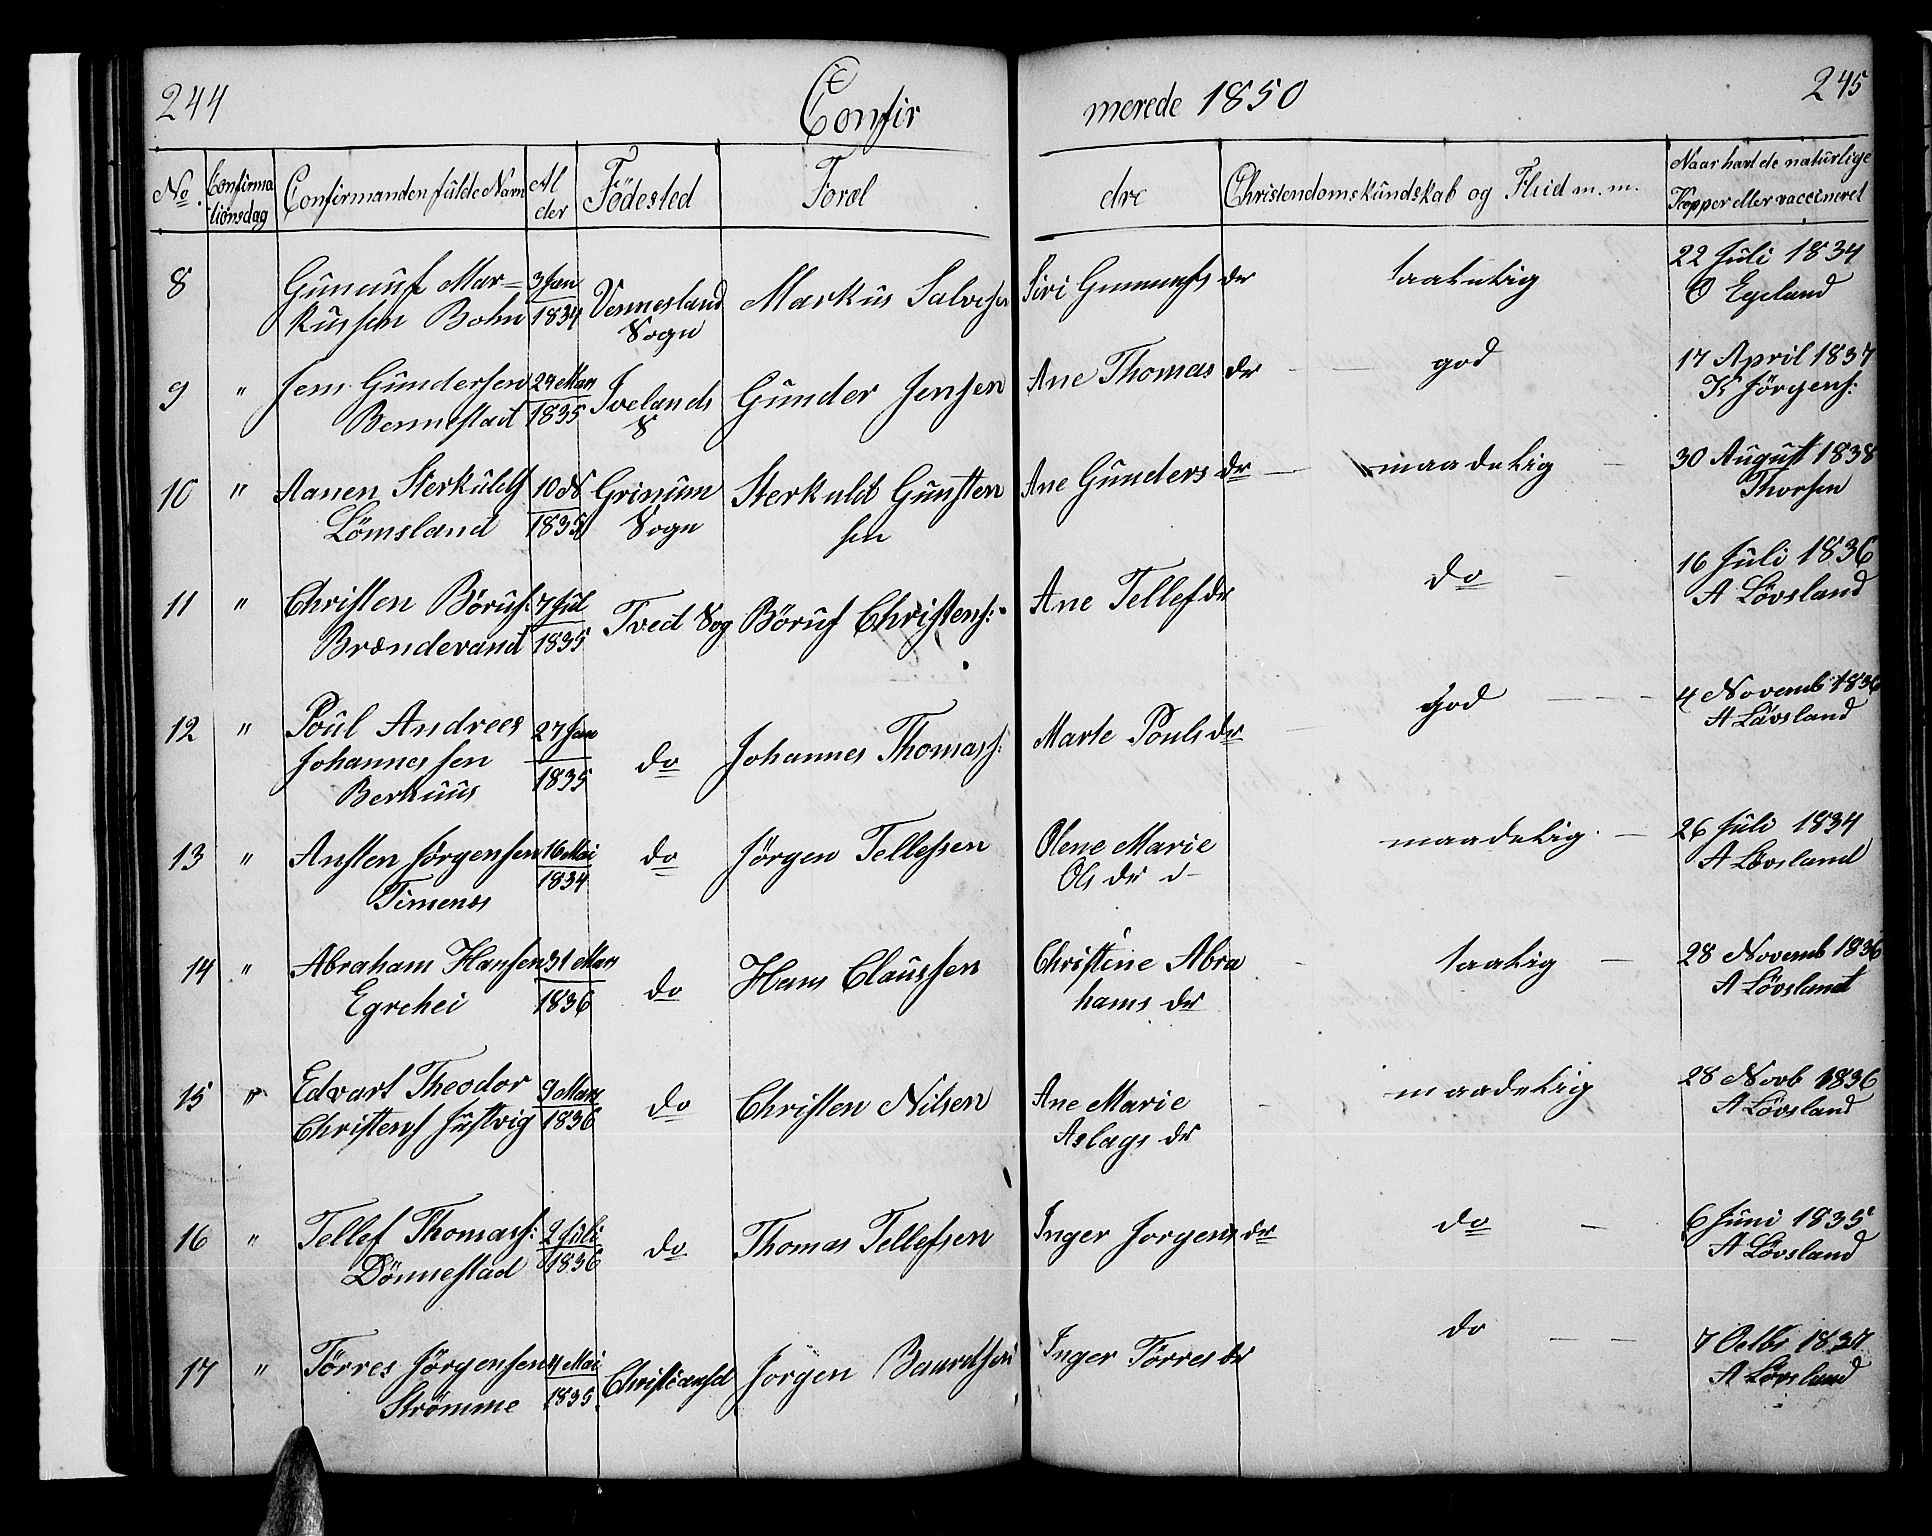 244
Confir
merede 1850
245
No.
Confirma
tionsdag
Confirmanden fulde Navn
Al
der
Födested
Foræl
dre
Christendomskundskab og Flid m. m.
Naar havt de naturlige
Kopper eller vaccineret
8
Gunuuf Mar=
kussen Bohn
3 Jan
1834
Vennesland
Sogn
Markus Salvesen
Siri Gunnufs dr
taalelig
22 Juli 1834
O Egeland
9 "
Jens Gundersen
Bennestad
29 Mars
1835
Ivelands
S
Gunder Jensen
Ane Thomas dr
god
17 April 1837
K Jörgens:
10 "
Aanen Sterkulds
Lömsland
10 N
1835
Grinum
Sogn
Sterkuld Gunsten
sen
Ane Gunders dr
maadelig
30 August 1838
Thorsen
11 "
Christen Börufs:
Brændevand
7 Jul
1835
Tved Sog
Böruf Christens:
Ane Tellefdr
do
16 Juli 1836
A Lövsland
12 "
Poul Andreas
Johannessen
Berhuus
27 Jan
1835
do
Johannes Thomass:
Marte Pouls dr
god
4 Novemb 1836
A Lövsland
13 "
Ansten Jörgensen
Timenes
16 Mai
1834
do
Jörgen Tellefsen
Olene Marie
Ols dr
maadelig
26 Juli 1834
A Lövsland
14 "
Abraham Hansen
Egrehei
31 Mars
1836
do
Hans Claussen
Christine Abra
hams dr
taalig
28 Novemb 1836
A Lövsland
15 "
Edvart Theodor
Christens Justvig
9 Mars
1836
do
Christen Nilsen
Ane Marie
Aslags dr
maadelig
28 Novb 1836
A Lövsland
16 "
Tellef Thomass:
Dönnestad
2 Juli
1836
do
Thomas Tellefsen
Inger Jorgens dr
do
6 Juni 1835
A Lövsland
17 "
Törres Jörgensen
Strömme
4 Mai
1835
Christiansd
Jorgen Baardsen
Inger Törres dr
do
7 Octbr 1837
A Lövsland